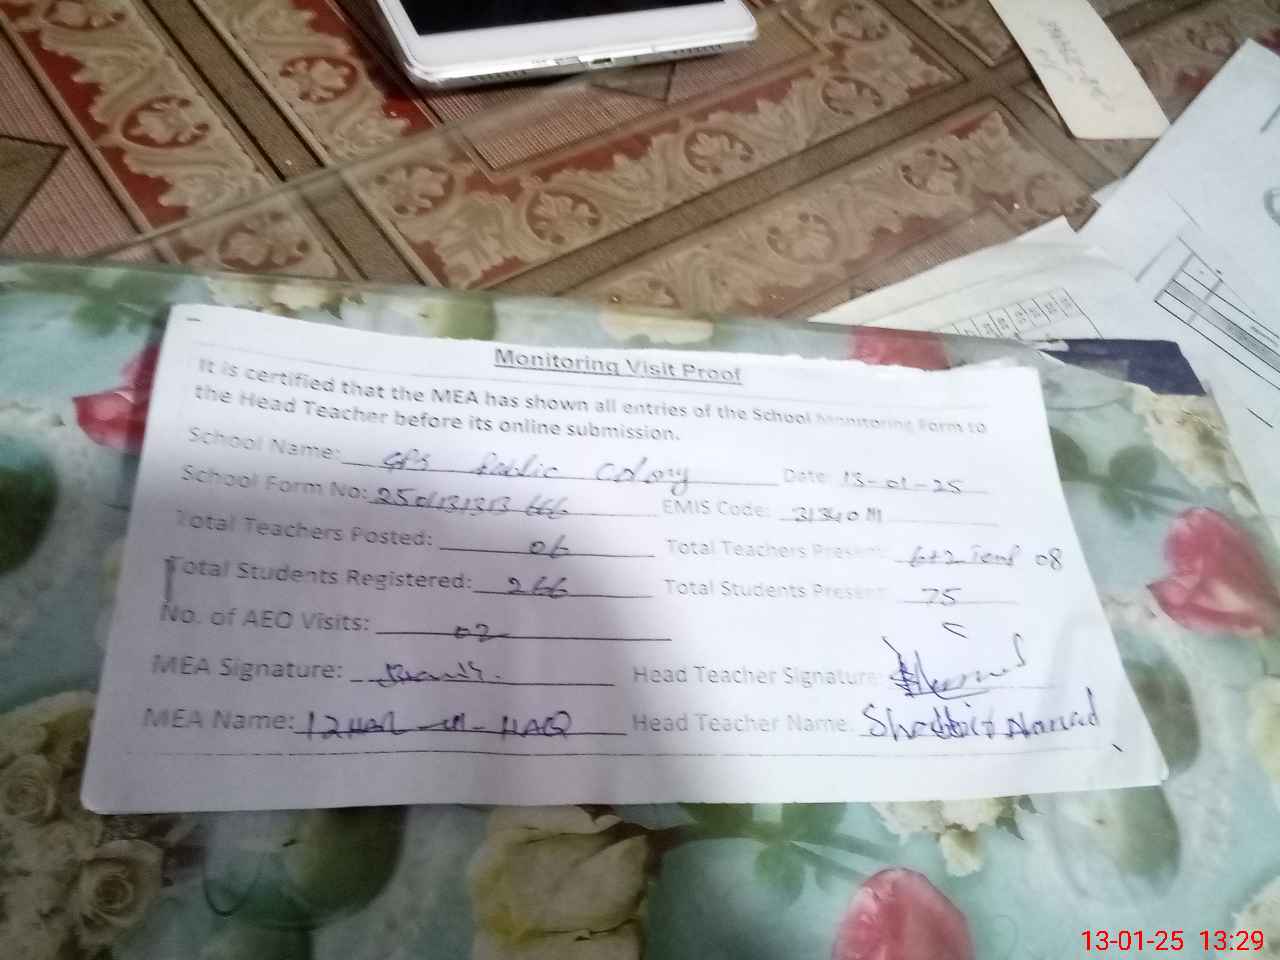 Monitoring Visit Proof
It is certified that the MEA has shown all entries of the School Monitoring Form to
the Head Teacher before its online submission.
School Name: GPS Public Colony Date: 13-01-25
School Form No: EMIS Code:
Total Teachers Posted: 06 Total Teachers Present: 6+2 Temp 08
Total Students Registered: 266 Total Students Present: 75
No. of AEO Visits: 02
MEA Signature: Head Teacher Signature:
MEA Name: -ul-HAQ Head Teacher Name:
13-01-25 13:29